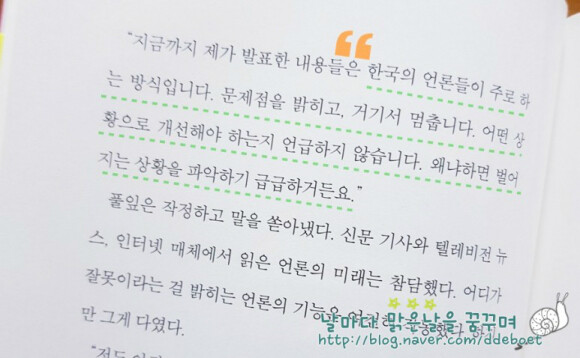 “지금까지 제가 발표한 내용들은 한국의 언론들이 주로 하
는 방식입니다. 문제점을 밝히고, 거기서 멈춥니다. 어떤 상
황으로 개선해야 하는지 언급하지 않습니다. 왜냐하면 벌어
지는 상황을 파악하기 급급하거든요.”
풀잎은 작정하고 말을 쏟아냈다. 신문 기사와 텔레비전 뉴
스, 인터넷 매체에서 읽은 언론의 미래는 참담했다. 어디가
잘못이라는 걸 밝히는 언론의 기능은
만 그게 다였다.
날마다 맑은날을 꿈꾸며
http://blog.naver.com/ddeboet